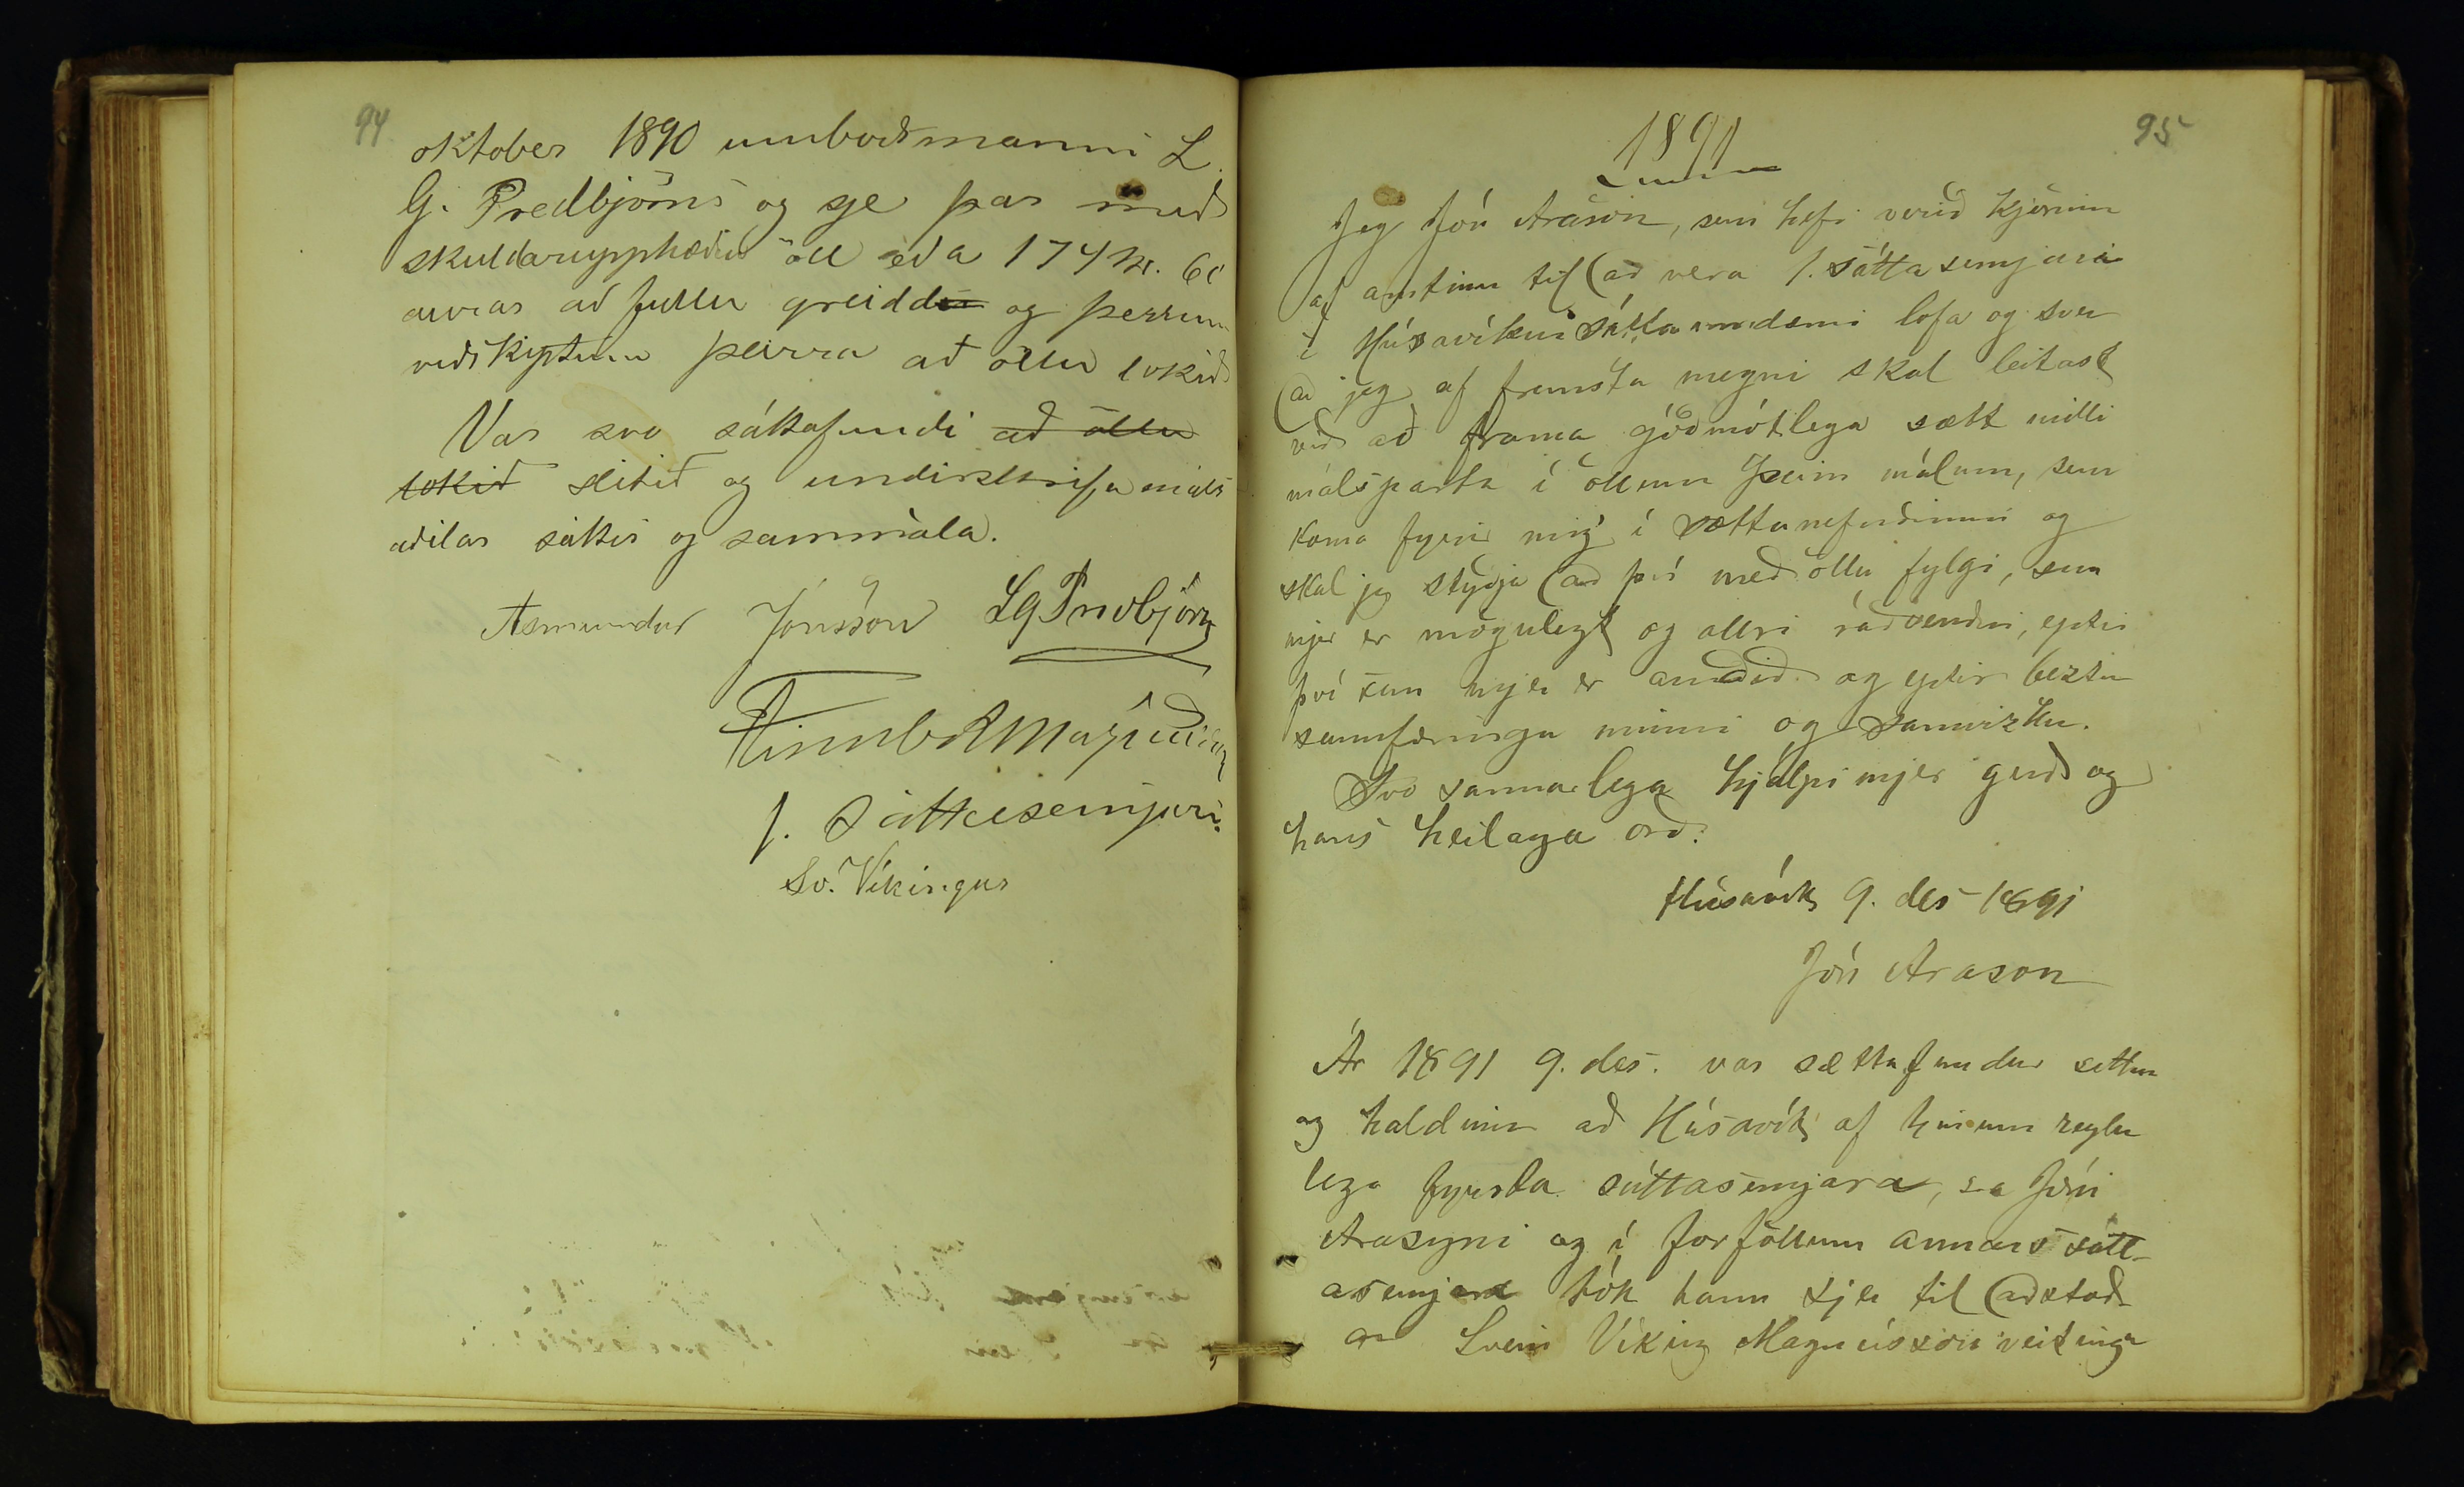 94
oktober 1890 umboðsmanni L.
G. Predbjörns og sje þar með
skuldarupphæðin öll eða 174 kr. 60
aurar að fullu greidd og þessum
viðskiptum þeirra að öllu lokið
Var svo sáttafundi að öllu
lokið slitið og undirskrifa máls
aðilar sáttir og sammála.
Asmundur Jónsson LGPredbjörn
J. Sáttasemjari.
Sv. Víkingur
95
1891
Jeg Jón Arason, sem hefi verið kjörinn
af amtinu til að vera 1. sáttasemjari
í Húsavíkur sáttaumdæmi lofa og sver
að jeg af fremsta megni skal leitast
við að frama góðmótlega sætt milli
málsparta í öllum þeim málum, sem
koma fyrir mig í sættanefndinni og
skal jeg styðja að því með öllu fylgi, sem
mjer er mögulegt og allri ráðvendni, eptir
því sem mjer er auðið og eptir beztu
sannfæringu minni og samvizku.
Svo sannarlega hjálpi mjer guð og
hans heilaga orð.
Húsavík 9. des 1891
Jón Arason
Ár 1891 9. des. var sættafundur settur
og haldinn að Húsavík af hinum reglu
lega fyrsta sáttasemjara, sa Jóni
Arasyni og í forföllum annars sátt-
asemjara tók hann sjer til aðstoð-
ar Svein Víking Magnússon veitinga